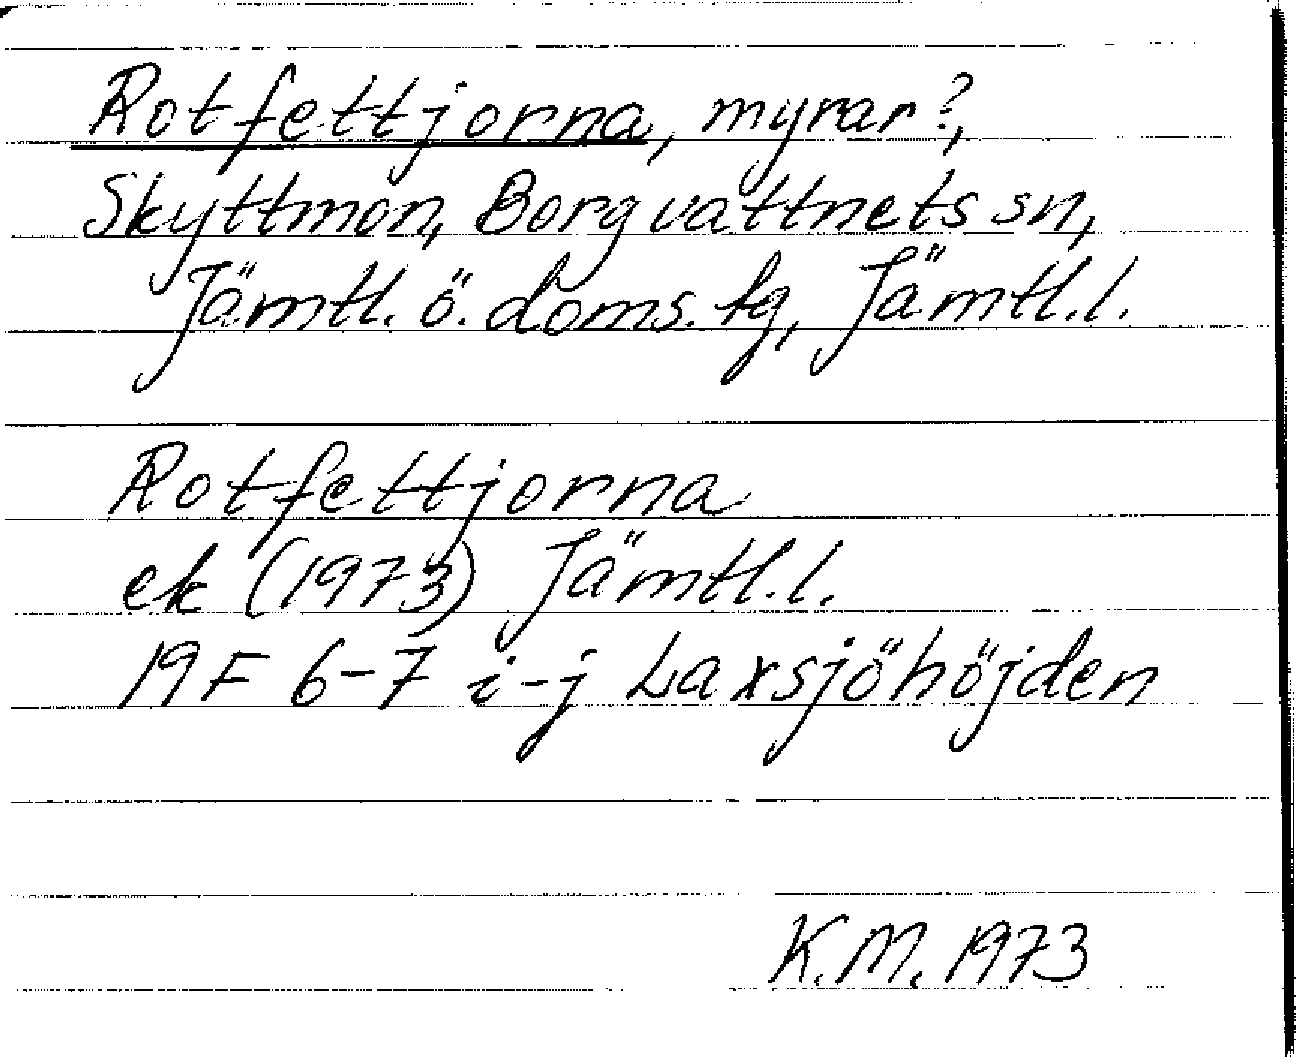 Rotfettjorna, myrar?,
Skyttmon, Borgvattnets sn,
Jämtl. ö. doms. tg, Jämtl. l.
Rotfettjorna
ek (1973) Jämtl. l.
19F 6-7 i-j Laxsjöhöjden
K.M. 1973